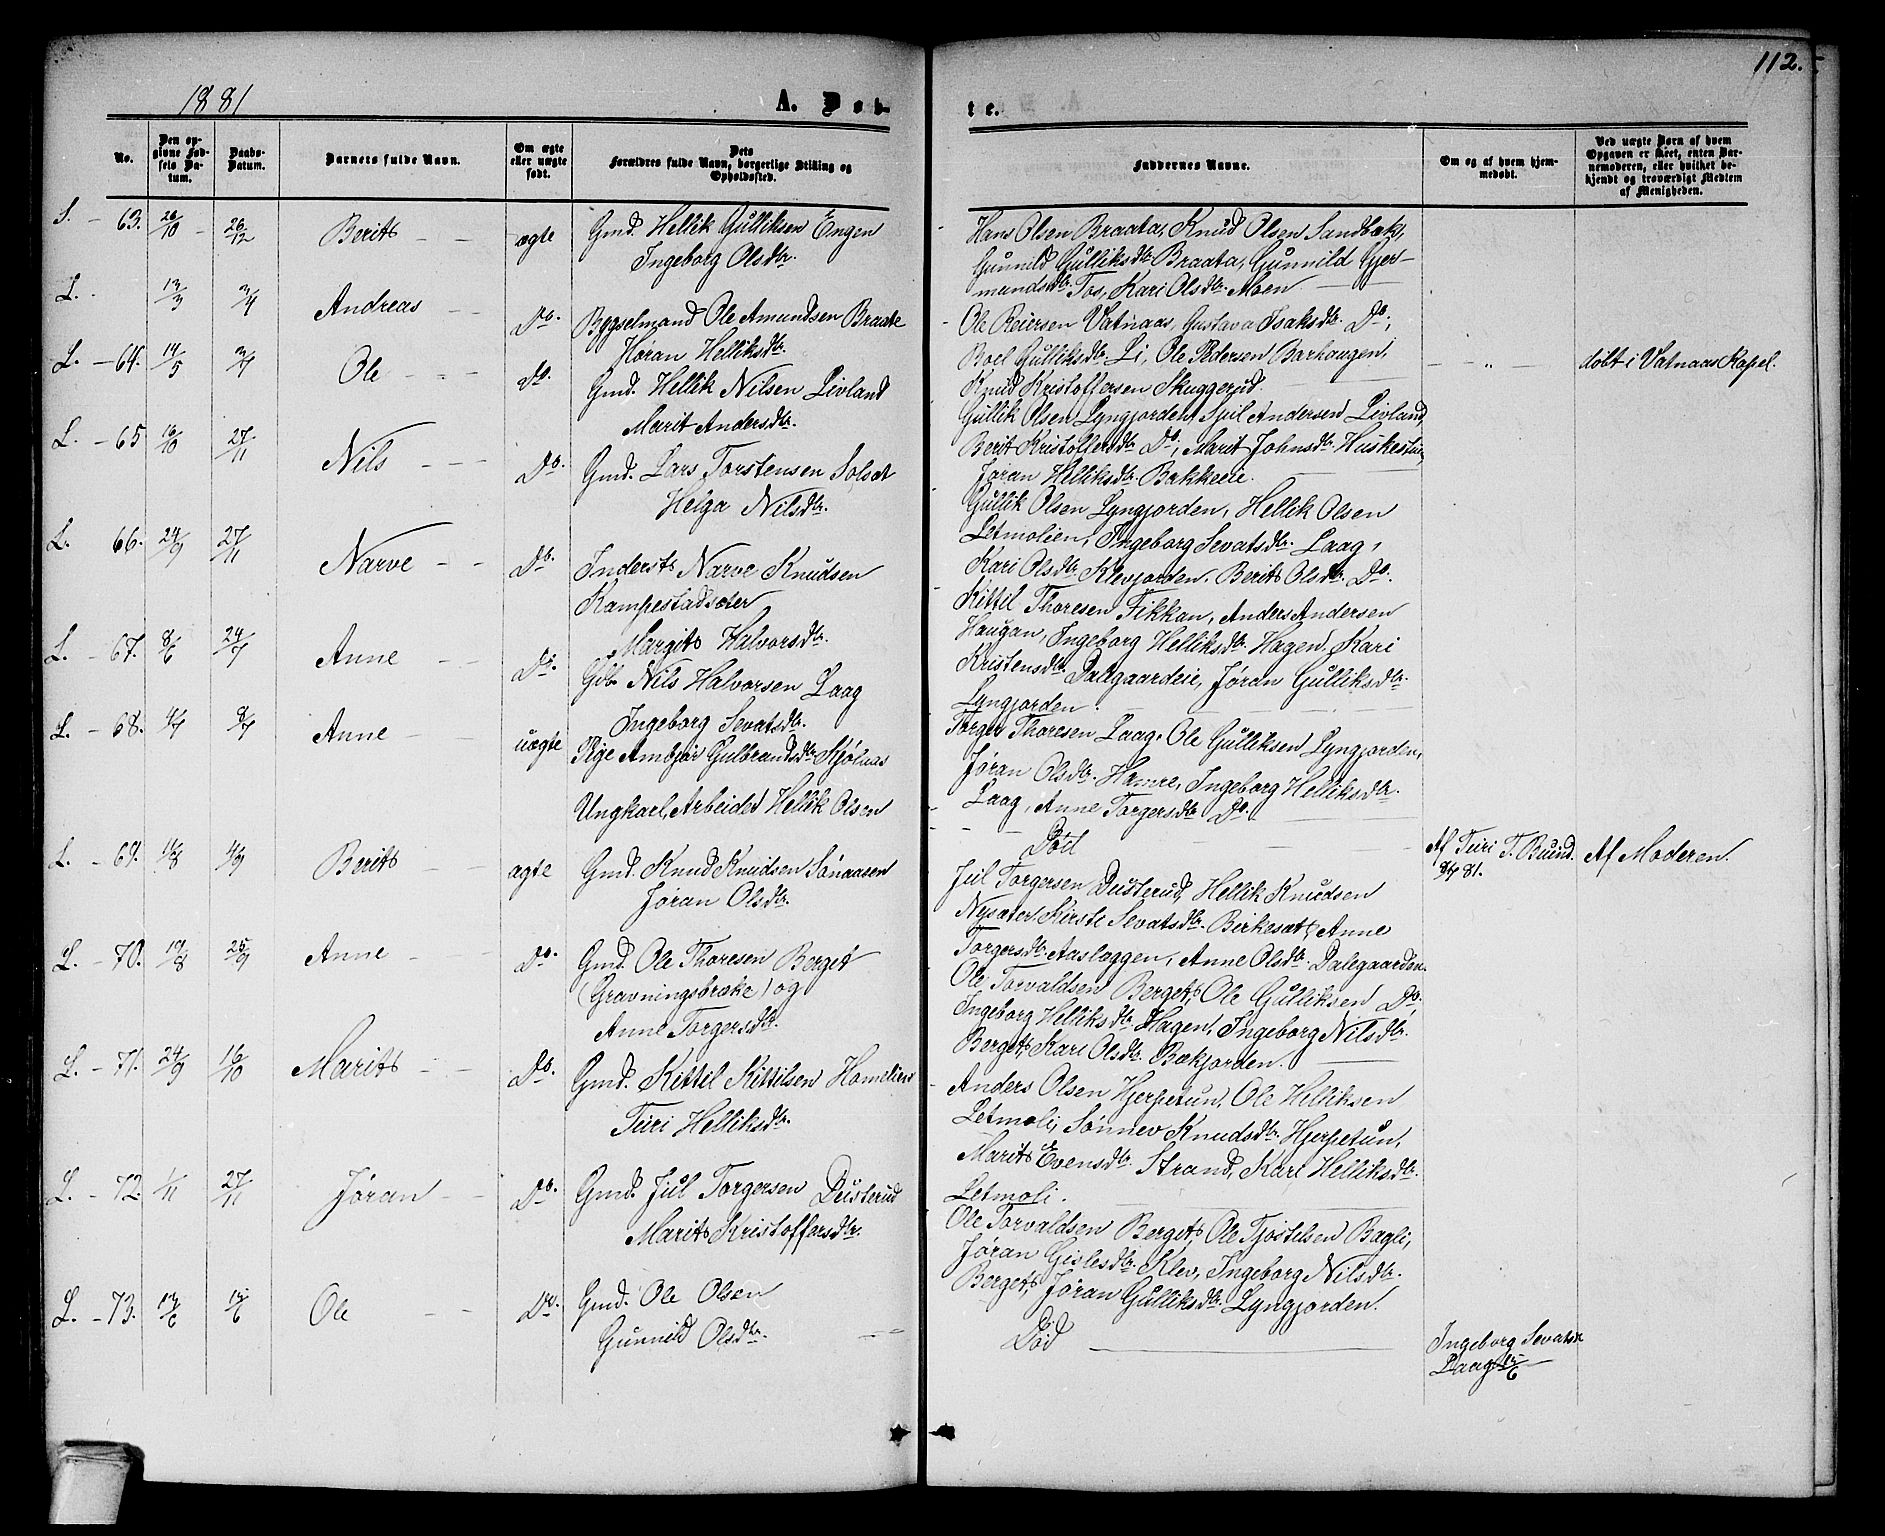 112.
1881
A. Døb-
te.
No.
Den op-
givne Fød-
sels Da-
tum.
Daabs-
Datum.
Barnets fulde Navn.
Om ægte
eller uægte
født.
Dets
Forældres fulde Navn, borgerlige Stilling og
Opholdssted.
Faddernes Navne.
Om og af hvem hjem-
medøbt.
Ved uægte Børn af hvem
Opgaven er skeet, enten Bar-
nemoderen, eller hvilket be-
kjendt og troværdigt Medlem
af Menigheden.
S. - 63. 26/10 - 26/12 Berit - - ægte
Gmd. Hellik Gulliksen Engen
Ingeborg Olsdtr.
Hans Olsen Braata, Knud Olsen Sandbæk,
Gunnild Gulliksdtr. Braata, Gunnild Gjer-
mundsdtr. Tos, Kari Olsdtr. Moen
L. 13/3 3/4 Andreas - - Do.
Bygselmand Ole Amundsen Braate
Jøran Helliksdtr.
Ole Reiersen Vatnaas, Gustava Isaksdtr. Do,
Boel Gulliksdtr. Li, Ole Pedersen Barhaugen,
Knud Kristoffersen Skuggerud.
- „ - døbt i Vatnaas Kapel.
L. - 64. 14/5 3/7 Ole - - Do.
Gmd. Hellik Nilsen Livland
Marit Andersdtr.
Gullik Olsen Lyngjordet, Spil Andersen Livland,
Berit Kristoffersdtr. Do, Marit Johnsdtr. Huskestue,
Jøran Helliksdtr. Bakkeeie.
L. - 65 16/10 27/11 Nils - - Do.
Gmd. Lars Torstensen Solsæt
Helga Nilsdtr.
Gullik Olsen Lyngjorden, Hellik Olsen
Letmolien, Ingeborg Sevatsdtr. Laag,
Kari Olsdtr. Klevjorden, Berit Olsdtr. Do.
L. 66. 24/9 27/11 Narve - - Do.
Inderst Narve Knudsen
Kampestadsæter
Margit Halvorsdtr.
Kittil Thoresen Fikkan, Anders Andersen
Haugan, Ingeborg Helliksdtr. Hagen, Kari
Kristensdtr. Dalgaardeie, Jøran Gulliksdtr.
Lyngjorden.
L. - 67. 8/6 24/7 Anne - - Do.
Gb. Nils Halvorsen Laag
Ingeborg Sevatsdtr.
Torger Thoresen Laag, Ole Gulliksen Lyngjorden,
Jøran Olsdtr. Hamre, Ingeborg Helliksdtr.
Laag, Anne Torgersdtr. Do.
L. - 68. 4/7 8/7 Anne - - uægte
Pige Ambjør Gulbrandsdtr. Kjølnas
Ungkarl, Arbeider Hellik Olsen
Død
Af Turi T. Buind.
8/7 81.
Af Moderen.
L. - 69. 14/8 4/9 Berit - - ægte
Gmd. Knud Knudsen Sønaasen
Jøran Olsdtr.
Jul Torgersen Dusterud, Hellik Knudsen
Nysæter, Kirsti Sevatsdtr. Birkesæt, Anne
Torgersdtr. Aasloggen, Anne Olsdtr. Dalegaarden.
L. - 70. 19/8 25/9 Anne - - Do.
Gmd. Ole Thoresen Berget
(Gravningsbrake) og
Anne Torgersdtr.
Ole Torvaldsen Berget, Ole Gulliksen Do,
Ingeborg Helliksdtr. Hagen, Ingeborg Nilsdtr.
Berget, Kari Olsdtr. Bækjorden.
L. - 71. 24/9 16/10 Marit - - Do.
Gmd. Kittil Kittilsen Homelien
Turi Helliksdtr.
Anders Olsen Hjerpetun, Ole Helliksen
Letmoli, Sønnev Knudsdtr. Hjerpetun,
Marit Evensdtr. Strand, Kari Helliksdtr.
Letmoli.
L. - 72. 1/11 27/11 Jøran - - Do.
Gmd. Jul Torgersen Dusterud
Marit Kristoffersdtr.
Ole Torvaldsen Berget, Ole Tjøstelsen Bagli,
Jøran Gislesdtr. Klev, Ingeborg Nilsdtr.
Berget, Jøran Gulliksdtr. Lyngjorden.
L. - 73. 13/6 15/6 Ole - - Do.
Gmd. Ole Olsen
Gunnild Olsdtr.
Død
Ingeborg Sevatsdtr.
Laag 15/6